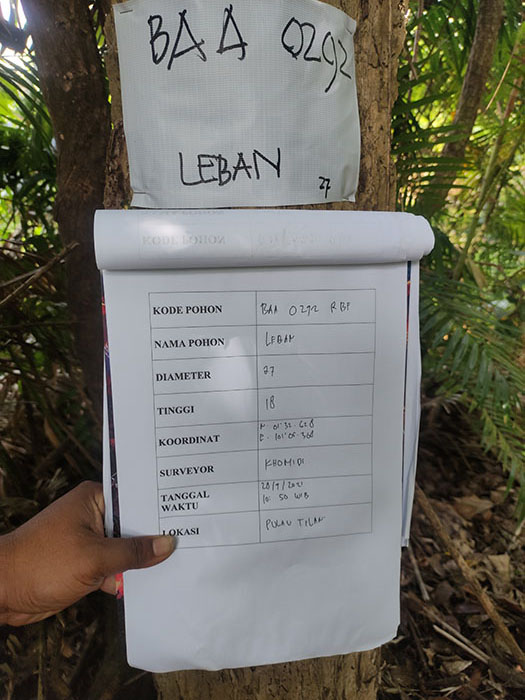 BAA 0292
LEBAN
27
KODE POHON BAA 0292 RBF
NAMA POHON LEBAN
DIAMETER 27
TINGGI 18
KOORDINAT N. 01°32.628
E. 101°05.368
SURVEYOR KHOMIDI
TANGGAL 28/9/2021
WAKTU 10:50 WIB
LOKASI PULAU TILAN